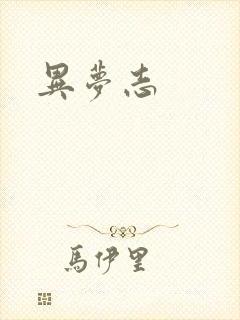 異夢志
馬伊里